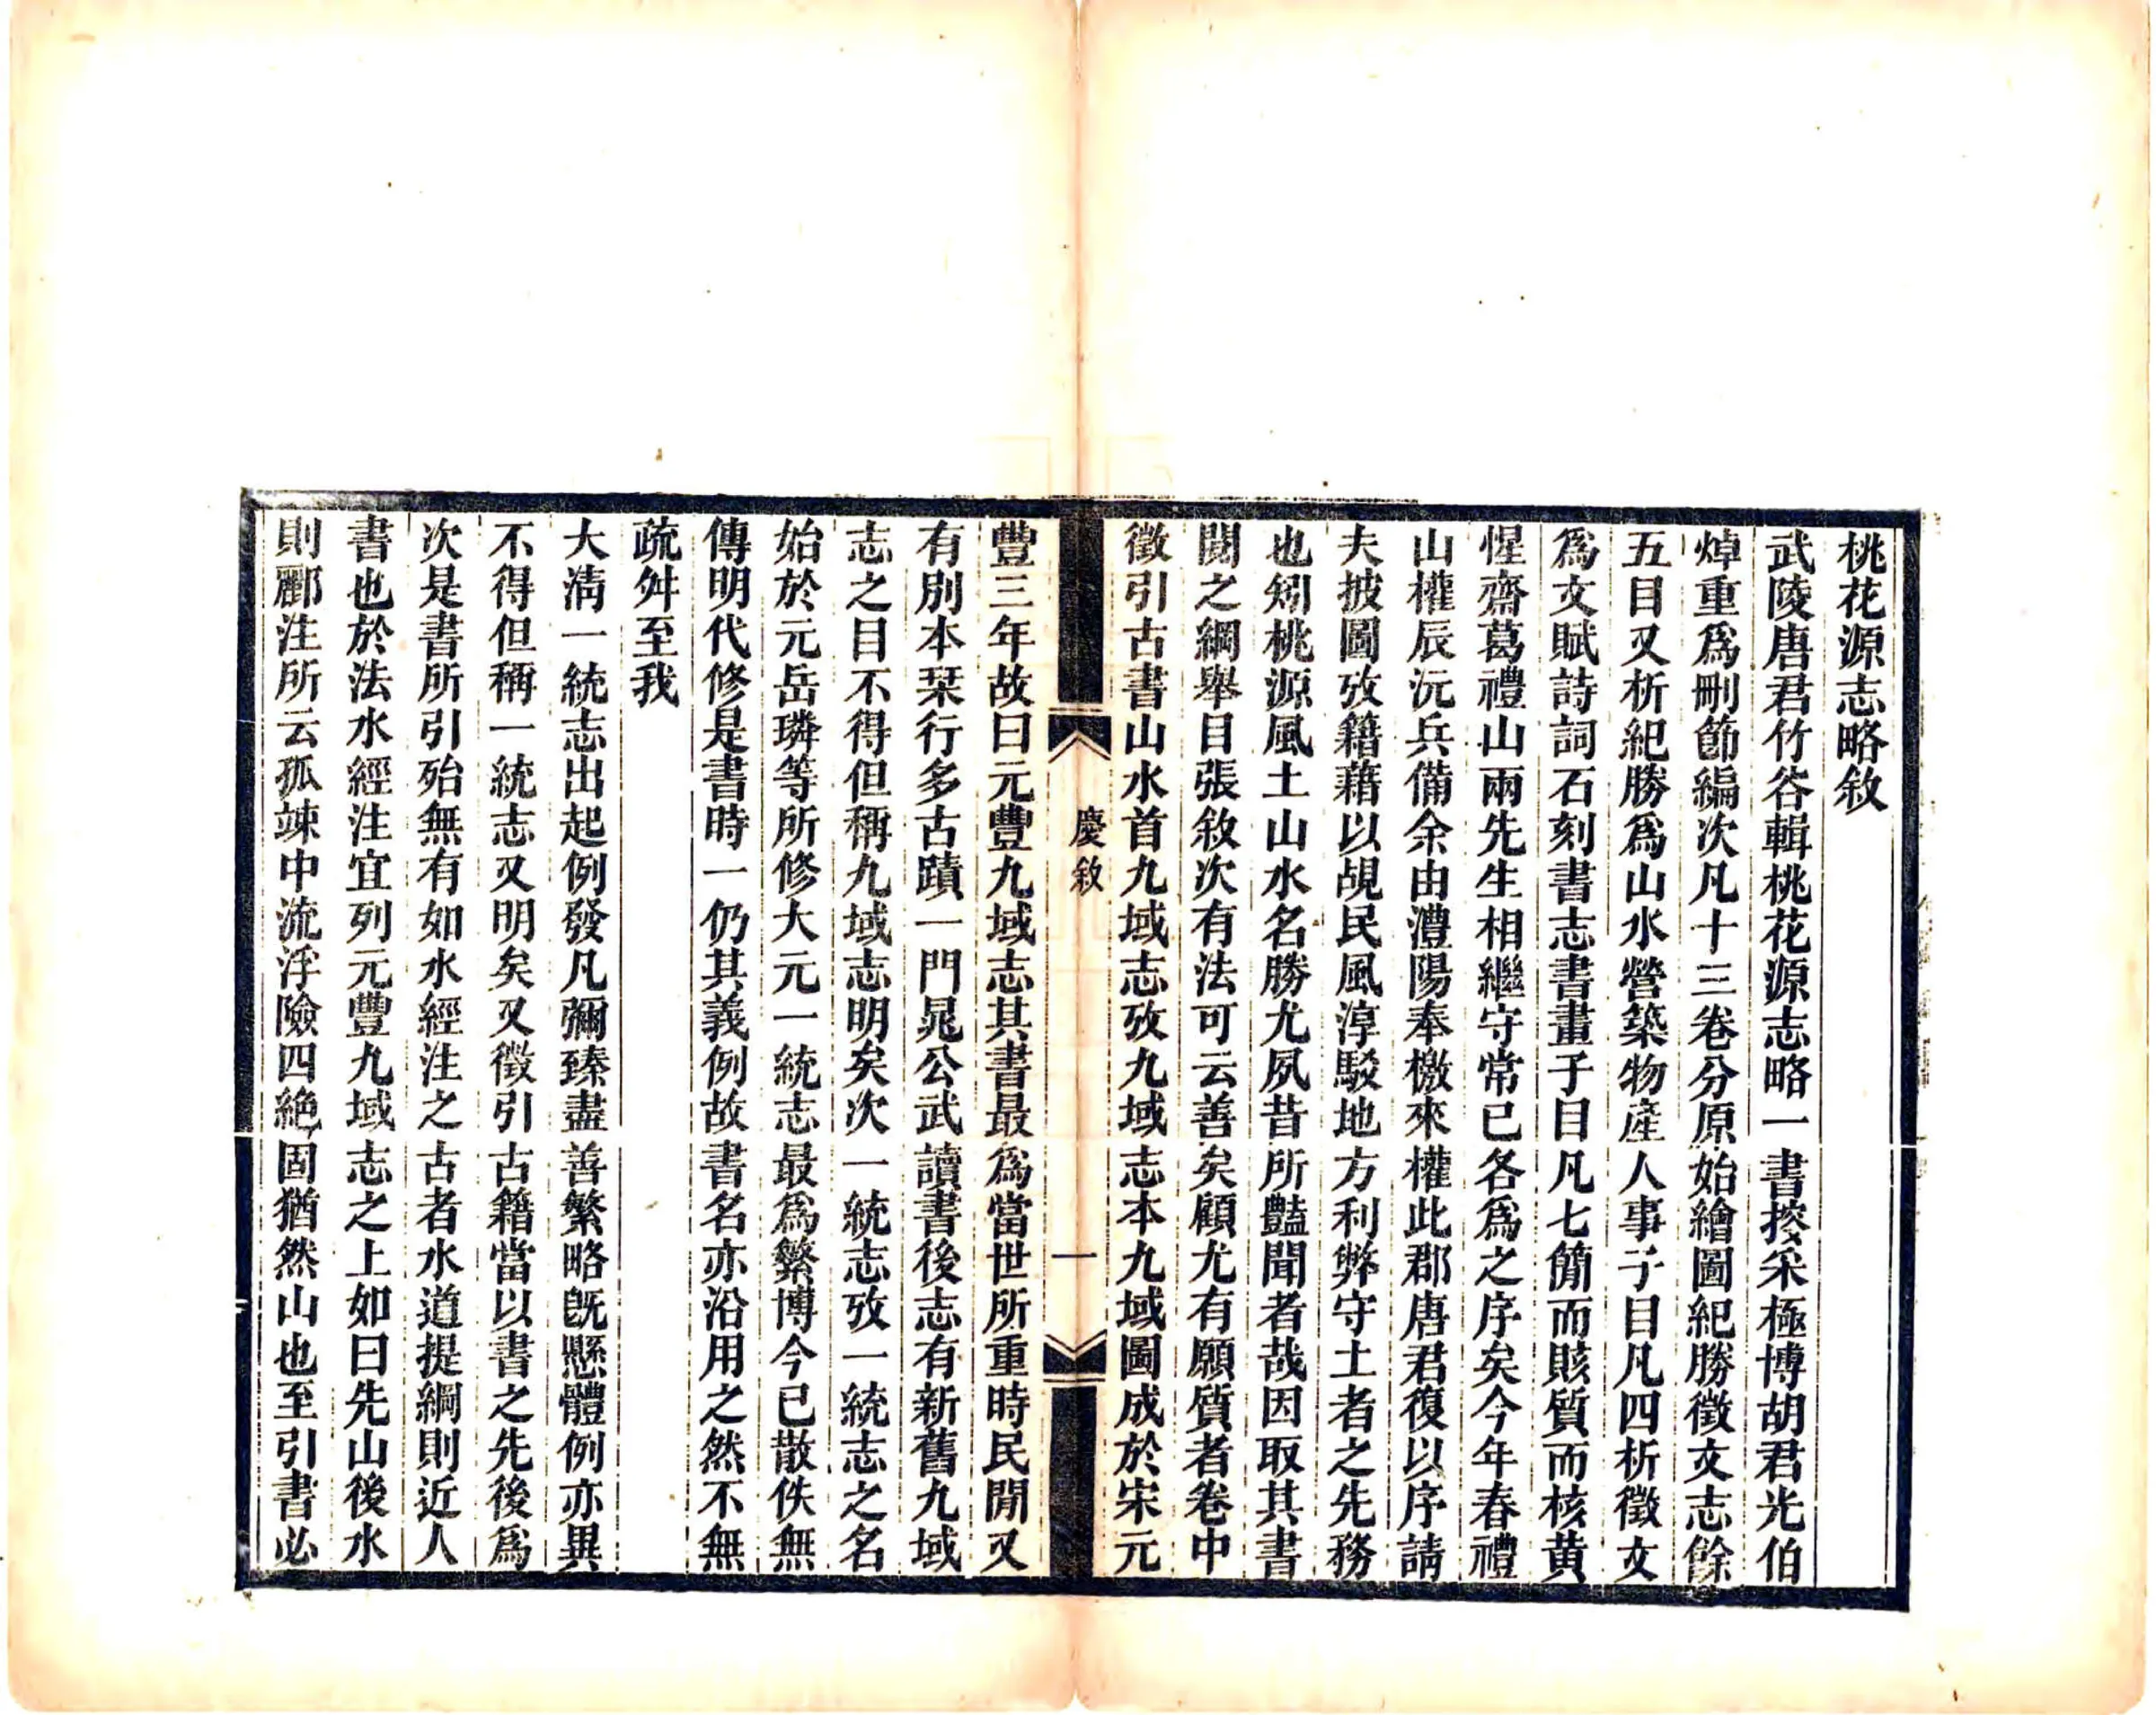 桃花源志略敘
武陵唐君竹谷輯桃花源志略一書搜采極博胡君光伯
焯重爲刪節編次凡十三卷分原始繪圖紀勝徵文志餘
五目又析紀勝爲山水營築物產人事子目凡四析徵文
爲文賦詩詞石刻書志書畫子目凡七簡而賅質而核黃
惺齋葛禮山兩先生相繼守常已各爲之序矣今年春禮
山權辰沅兵備余由澧陽奉檄來權此郡唐君復以序請
夫披圖攷籍藉以覘民風淳駁地方利弊守土者之先務
也矧桃源風土山水名勝尤夙昔所豔聞者哉因取其書
閱之綱舉目張敘次有法可云善矣顧尤有願質者卷中
徵引古書山水首九域志攷九域志本九域圖成於宋元
慶敘
一
豐三年故曰元豐九域志其書最爲當世所重時民閒又
有別本栞行多古蹟一門晁公武讀書後志有新舊九域
志之目不得但稱九域志明矣次一統志攷一統志之名
始於元岳璘等所修大元一統志最爲繁博今已散佚無
傳明代修是書時一仍其義例故書名亦沿用之然不無
疏舛至我
大淸一統志出起例發凡彌臻盡善繁略旣懸體例亦異
不得但稱一統志又明矣又徵引古籍當以書之先後爲
次是書所引殆無有如水經注之古者水道提綱則近人
書也於法水經注宜列元豐九域志之上如曰先山後水
則酈注所云孤竦中流浮險四絶固猶然山也至引書必